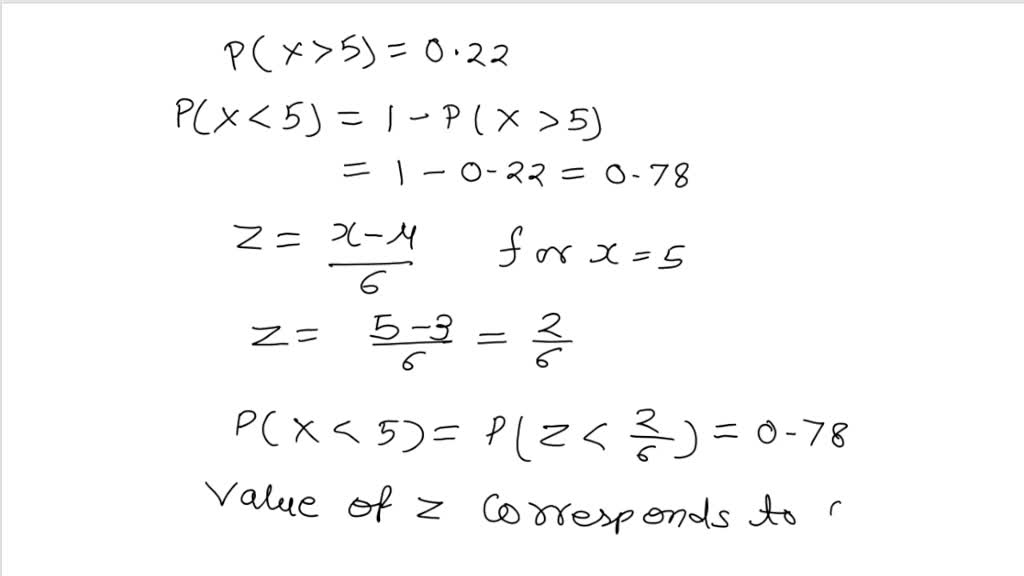 P(x>5) = 0.22
P(x<5) = 1 - P(x>5)
= 1 - 0.22 = 0.78
z = (x-μ)/σ for x = 5
z = (5-3)/σ = 2/σ
P(x<5) = P(z < 2/σ) = 0.78
Value of z corresponds to